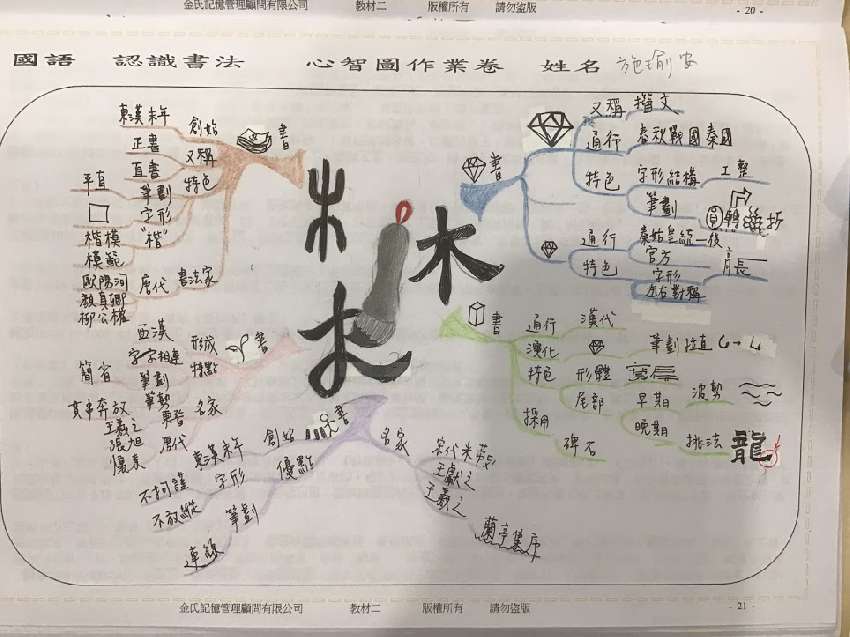 金氏記憶管理顧問有限公司 教材二 版權所有 請勿盜版 - 20 -
國語 認識書法 心智圖作業卷 姓名 施瑜安
木
木
書
又稱 擋文
通行 春秋戰國秦國
特色 字形結構 工整
筆劃 圓轉 折
通行 秦始皇統一後
官方
特色 字形 長
左右對稱
書
通行 漢代
演化 筆劃 直
特色 形體
尾部 早期 波勢
晚期 挑法 龍
採用 碑石
書
名家 宋代米芾
王獻之
王羲之
蘭亭集序
創始 東漢末年
優點 字形 不拘謹
筆劃 不放縱
連綴
書
形成 西漢
特點 字字相連
筆劃 簡省
筆勢 真率奔放
名家 東晉 王羲之
唐代 張旭
懷素
書
創始 東漢末年
又稱 正書
直書
特色 筆劃 平直
字形
"楷" 楷模
模範
書法家 唐代 歐陽詢
顏真卿
柳公權
金氏記憶管理顧問有限公司 教材二 版權所有 請勿盜版 - 21 -